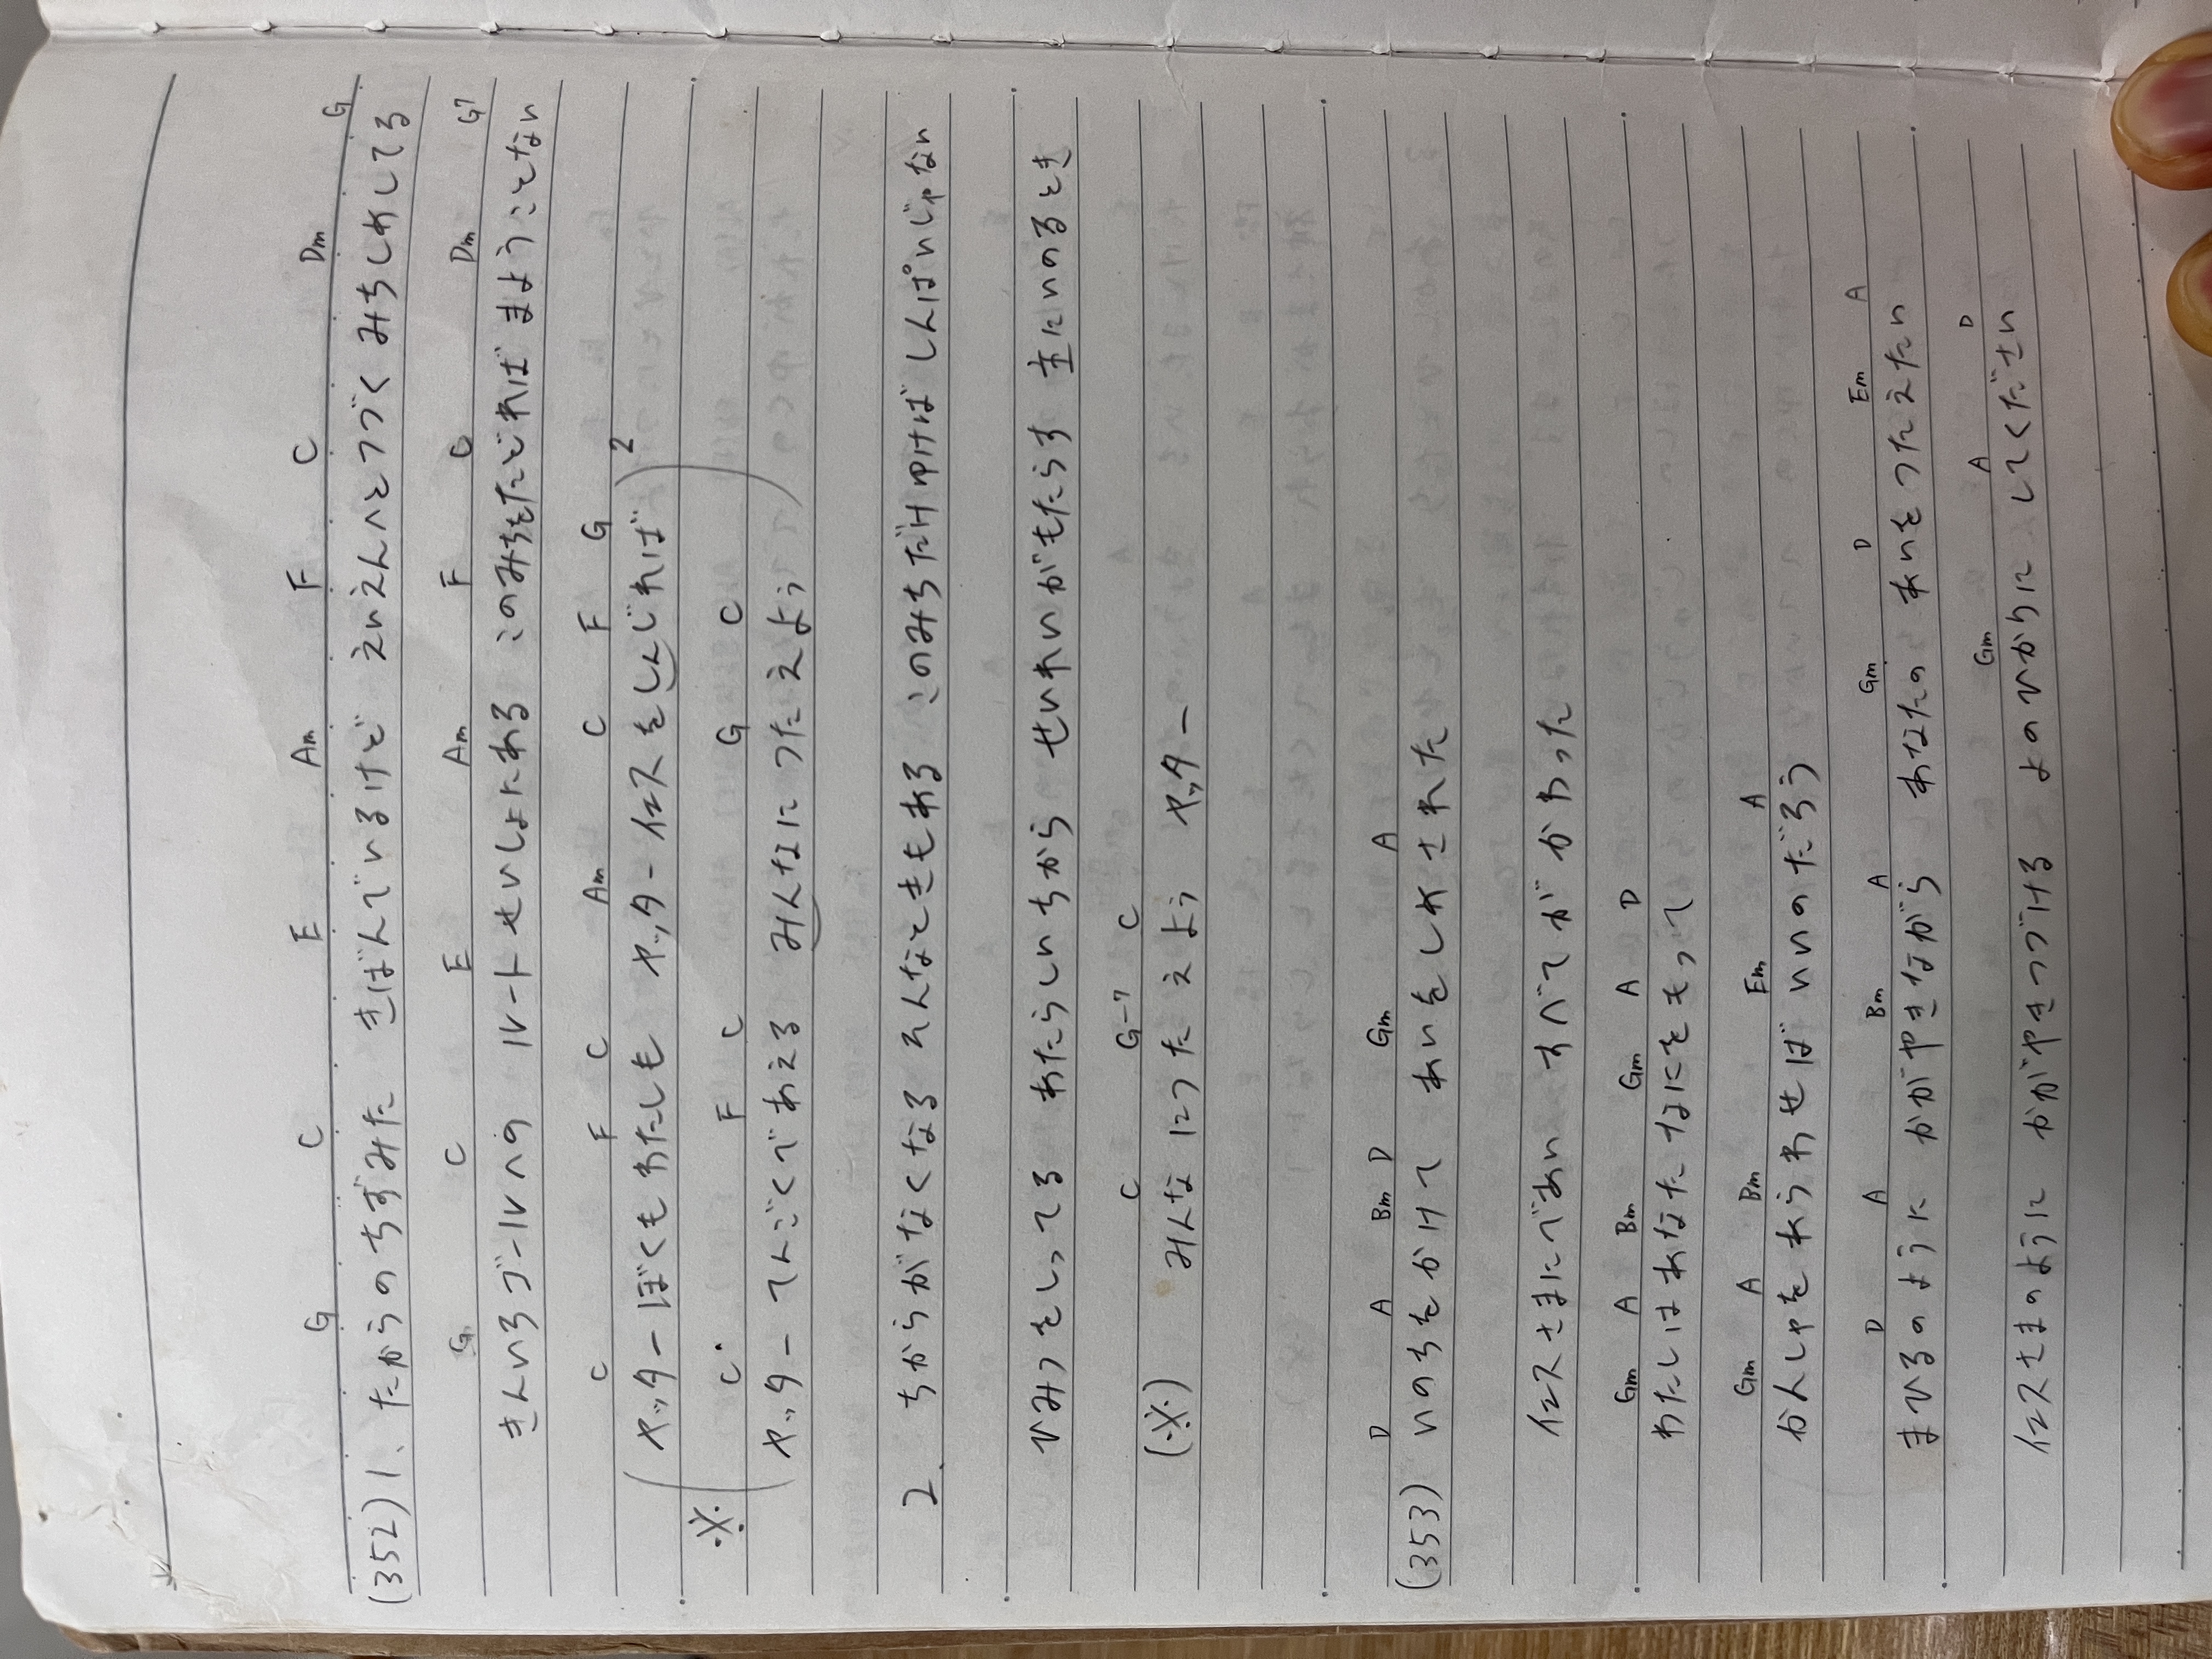 G C E Am F C Dm G
(352) 1、たからのちずみた きぼんでいるけど えいえんへとつづく みちしめしてる
G C E Am F G Dm G7
きんいろゴールへの ルートせいしょにある このみちをたどれば まようことない
C F C Am C F G
(ヤッター ぼくもわたしも ヤッター イエスをしんじれば) 2
※ C F C G C
(ヤッター てんごくであえる みんなにつたえよう)
2、ちからがなくなる そんなときもある このみちだけゆけば しんぱいじゃない
ひみつをしってる あたらしいちから せいれいがもたらす 主にいのるとき
C G-7 C
(※) みんなにつたえよう ヤッター
D A Bm D Gm A
(353) いのちをかけて あいをしめされた
イエスさまにであい すべてがかわった
Gm A Bm Gm A D
わたしはあなたになにをもって
Gm A Bm Em A
かんしゃをあらわせばいいのだろう
D A Bm A Gm D Em A
まひるのように かがやきながら あなたの あいをつたえたい
Gm A D
イエスさまのように かがやきつづける よのひかりに してください